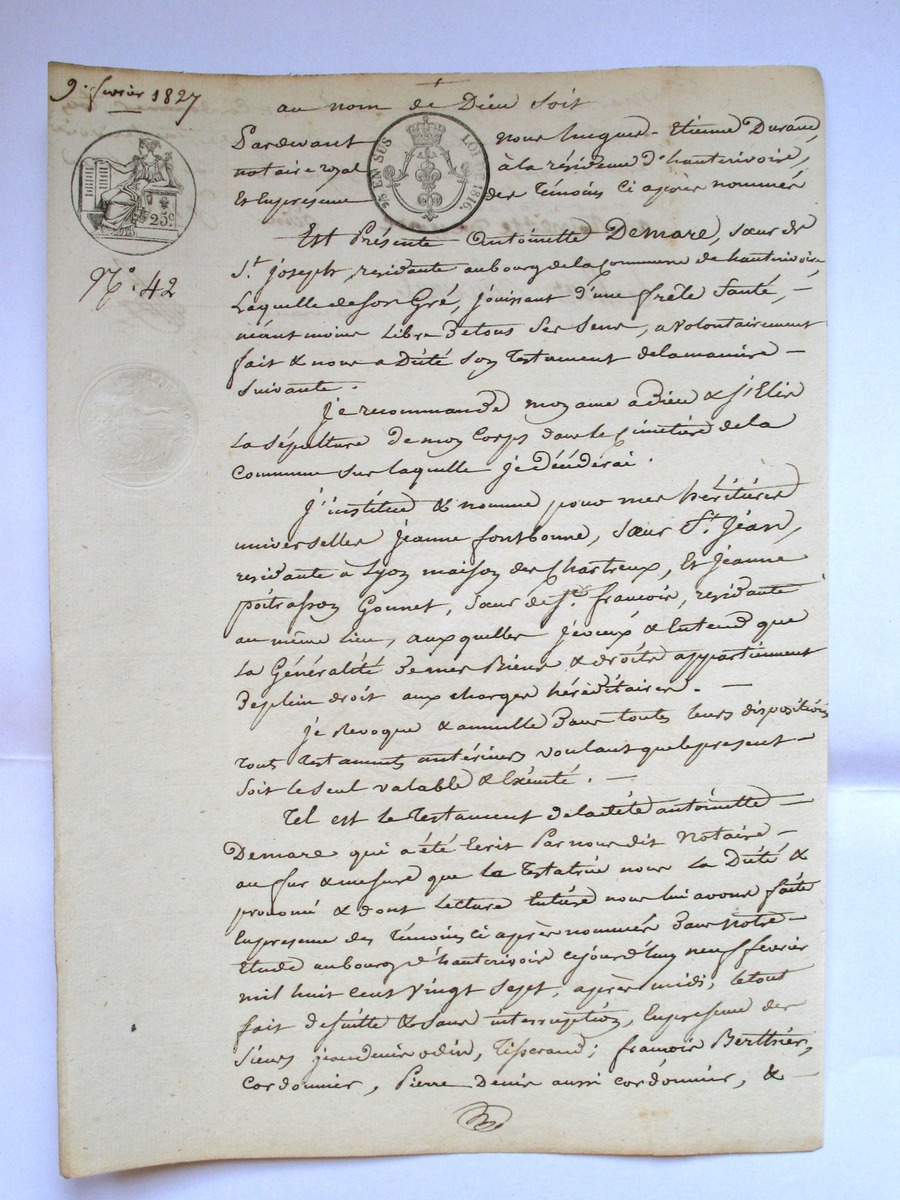 9. fevrier 1827
au nom de Dieu Soit
Pardevant nous hugues-Etienne Durand,
notaire royal à la résidence d'hauterivoire,
Et En presence des Témoins ci après nommés
25 EN SUS LOI DE 1816.
25c.
N.° 42
Est Présente Antoinette Demare, sœur de
St. joseph, residante au bourg de la Commune de hauterivoire,
Laquelle de son Gré, jouissant d'une frêle Santé, -
néant moins Libre De tous Ses Sens, a volontairement
fait & nous a Dicté Son Testament de la maniere -
Suivante.
Je recommande mon ame a Dieu & j'Elis
La Sépulture de mon Corps dans le Cimetière de la
Commune sur laquelle je décéderai.
J'institue & nomme pour mes héritières
universelles Jeanne fontbonne, sœur St. Jean,
residante à Lyon maison des Chartreux, Et Jeanne
poitrasson Gonnet, Sœur de St. francois, residante
au même lieu, aux quelles je veux & Entend que
La Généralité De mes Biens & droits appartiennent
De plein droit aux charges héréditaires. -
Je Revoque & annulle Dans toutes leurs dispositions
Tous Testaments antérieurs voulant que le present -
Soit le Seul valable & Exécuté. -
Tel est le Testament de la dité antoinette -
Demare qui a été Ecrit Par nous dit Notaire -
au fur & mesure que la Testatrice nous La Dicté &
prononcé & dont Lecture Entière nous lui avons faite
En presence des Témoins ci après nommés Dans Notre -
Etude au bourg d'hauterivoire cejourd'huy neuf fevrier
mil huit cent vingt Sept, après midi, le tout
fait de suitte & Sans interruption, En presence des
Sieurs jean denis odin, Tisserand; francois Berthier,
Cordonnier, Pierre Denis aussi cordonnier, & -